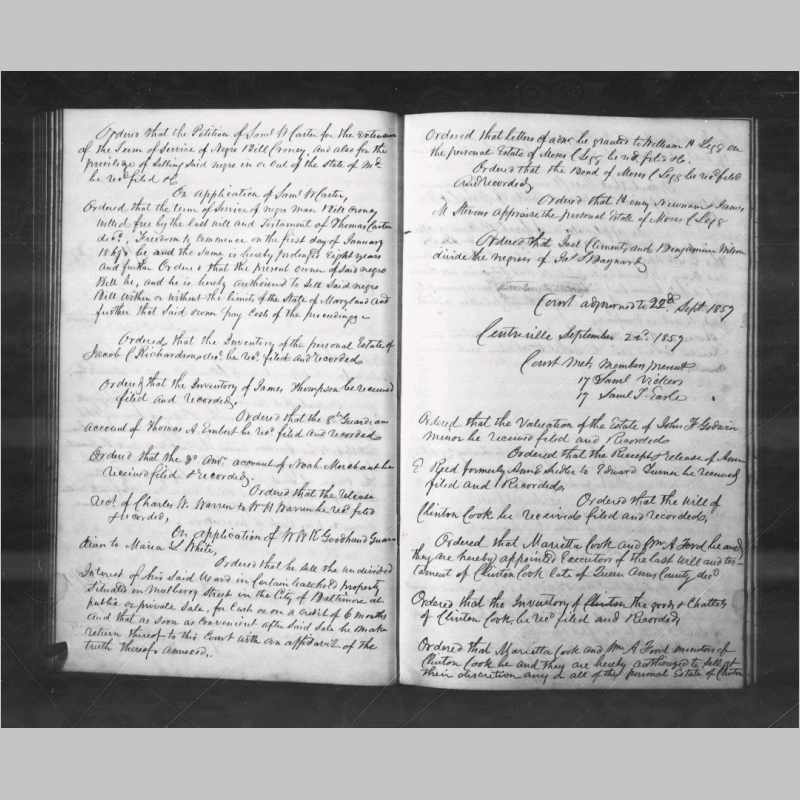 Ordered that the Petition of Saml W Carter for the extension
of the Term of Service of Negro Bill Croney, and also for the
privilege of Selling Said negro in or out of the State of Md
be recd filed &c
On application of Saml W Carter,
Ordered that the term of Service of negro man Bill Croney
willed free by the last will and Testament of Thomas Carter
decd, Freedom to commence on the first day of January
be and the Same is hereby prolonged Eight years
and further Ordered that the present owner of Said negro
Bill be, and he is hereby authorised to Sell Said negro
Bill within or without the limits of the State of Maryland and
further that Said owner pay Costs of the proceedings
Ordered that the Inventory of the personal Estate of
Jacob C Richardson decd. be recd. filed and recorded
Ordered that the Inventory of James Thompson be received
filed and recorded,
Ordered that the 8th Guardian
account of Thomas A. Embert be recd filed and recorded
Ordered that the Admr account of Noah Merchant be
received filed & recorded,
Ordered that the release
recd. of Charles W. Warren to W H Warren be recd filed
& recorded,
On application of W W K Goodhand Guar
dian to Maria L White,
Ordered that he sell the undivided
Interest of his Said Ward in Certain leasehold property
Situated in Mulberry Street in the City of Baltimore at
public or private Sale, for Cash or on a credit of 6 months
and that as soon as convenient after Said Sale he make
return thereof to this Court with an affidavit of the
truth thereof annexed,
Ordered that letters of admr be granted to William H Legg on
the personal Estate of Moses C Legg be recd filed &c.
Ordered that the Bond of Moses C Legg be recd filed
and recorded,
Ordered that Henry Newnam & James
M Stevens appraise the personal Estate of Moses C Legg
Ordered that Clements and Benjamin Wilson
divide the negroes of Jas Baynard,
Court adjourned to 22d Sept 1857
Centreville September 22d. 1857
Court met, members present
Saml Vickers
Saml T. Earle
Ordered that the Valuation of the Estate of John F Godwin
minor be received filed and Recorded
Ordered that the Receipt & release of Ann
E Reed formerly Ann E to Edward Turner be received
filed and Recorded,
Ordered that the Will of
Clinton Cook be received filed and recorded,
Ordered that Marietta Cook and Wm A Ford be and
they are hereby appointed Executors of the last will and tes-
tament of Clinton Cook late of Queen Anns County decd
Ordered that the Inventory of Clinton the goods & Chattels
of Clinton Cook, be recd filed and Recorded,
Ordered that Marietta Cook and Wm A Ford executors of
Clinton Cook be and they are hereby authorized to sell at
their discretion any & all of the personal Estate of Clinton